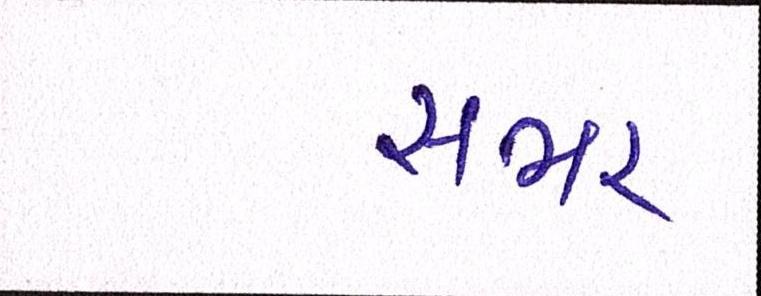 સભર